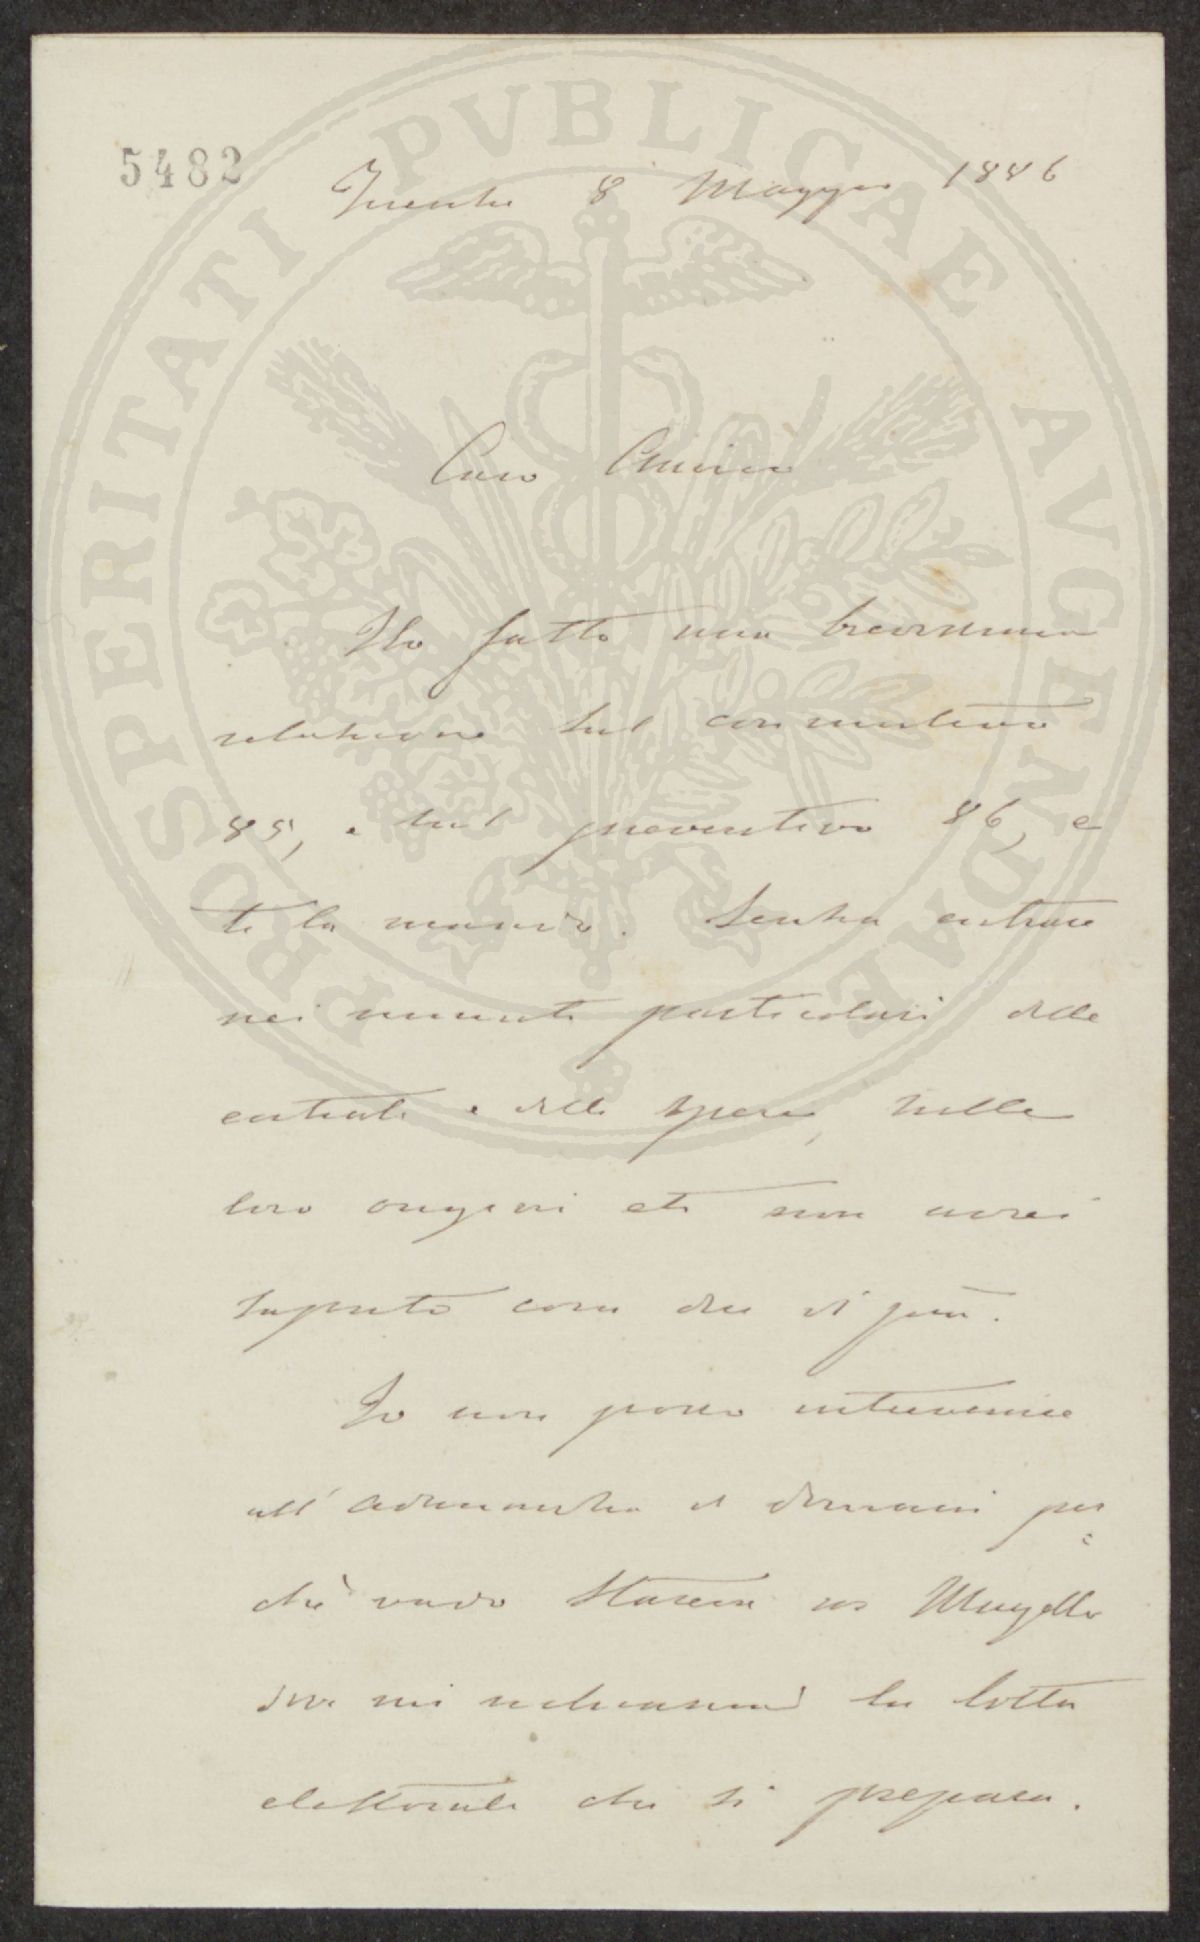 5482
Firenze 8 Maggio 1886
Caro Amico
Ho fatto una brevissima
relazione sul consuntivo
85, e sul preventivo 86, e
te la mando. Senza entrare
nei minuti particolari delle
entrate e delle spese, sulle
loro origini etc non avrei
saputo cosa dire di più.
Io non posso intervenire
all'adunanza di domani per
chè vado stasera in Mugello
dove mi richiamano la lotta
elettorale che si prepara.
PROSPERITATI PVBLICAE AVGENDAE